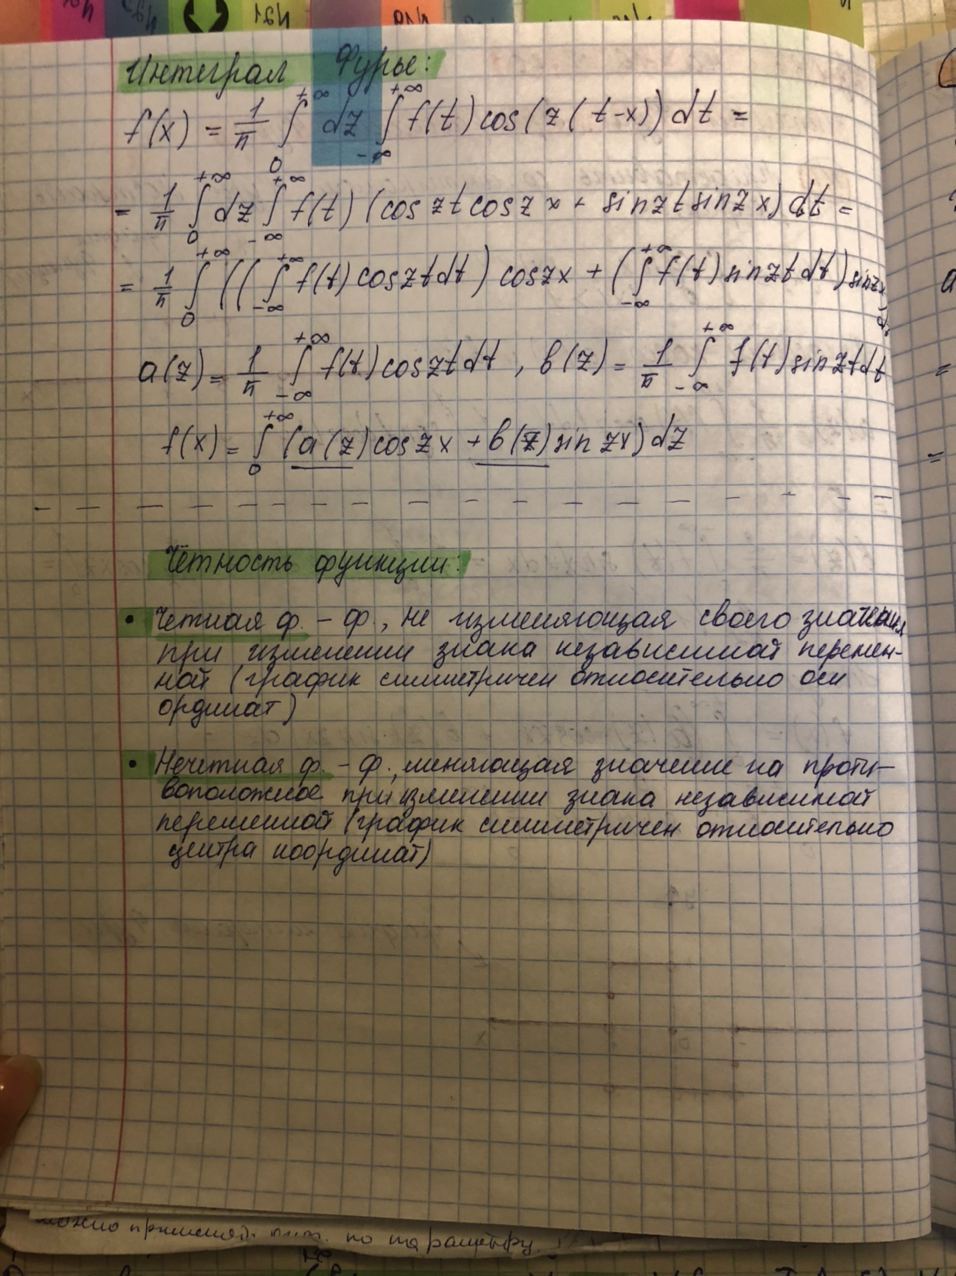 Интеграл Фурье:
f(x) = 1/π ∫₀^{+∞} dz ∫_{-∞}^{+∞} f(t) cos(z(t-x)) dt =
= 1/π ∫₀^{+∞} dz ∫_{-∞}^{+∞} f(t) (cos zt cos zx + sin zt sin zx) dt =
= 1/π ∫₀^{+∞} ((∫_{-∞}^{+∞} f(t) cos zt dt) cos zx + (∫_{-∞}^{+∞} f(t) sin zt dt) sin zx
a(z) = 1/π ∫_{-∞}^{+∞} f(t) cos zt dt, b(z) = 1/π ∫_{-∞}^{+∞} f(t) sin zt dt
f(x) = ∫₀^{+∞} (a(z) cos zx + b(z) sin zx) dz
Чётность функции:
• Четная ф. – ф., не изменяющая своего значения
при изменении знака независимой перемен-
ной (график симметричен относительно оси
ординат)
• Нечетная ф. – ф., меняющая значение на проти-
воположное при изменении знака независимой
переменной (график симметричен относительно
центра координат)
можно по параметру